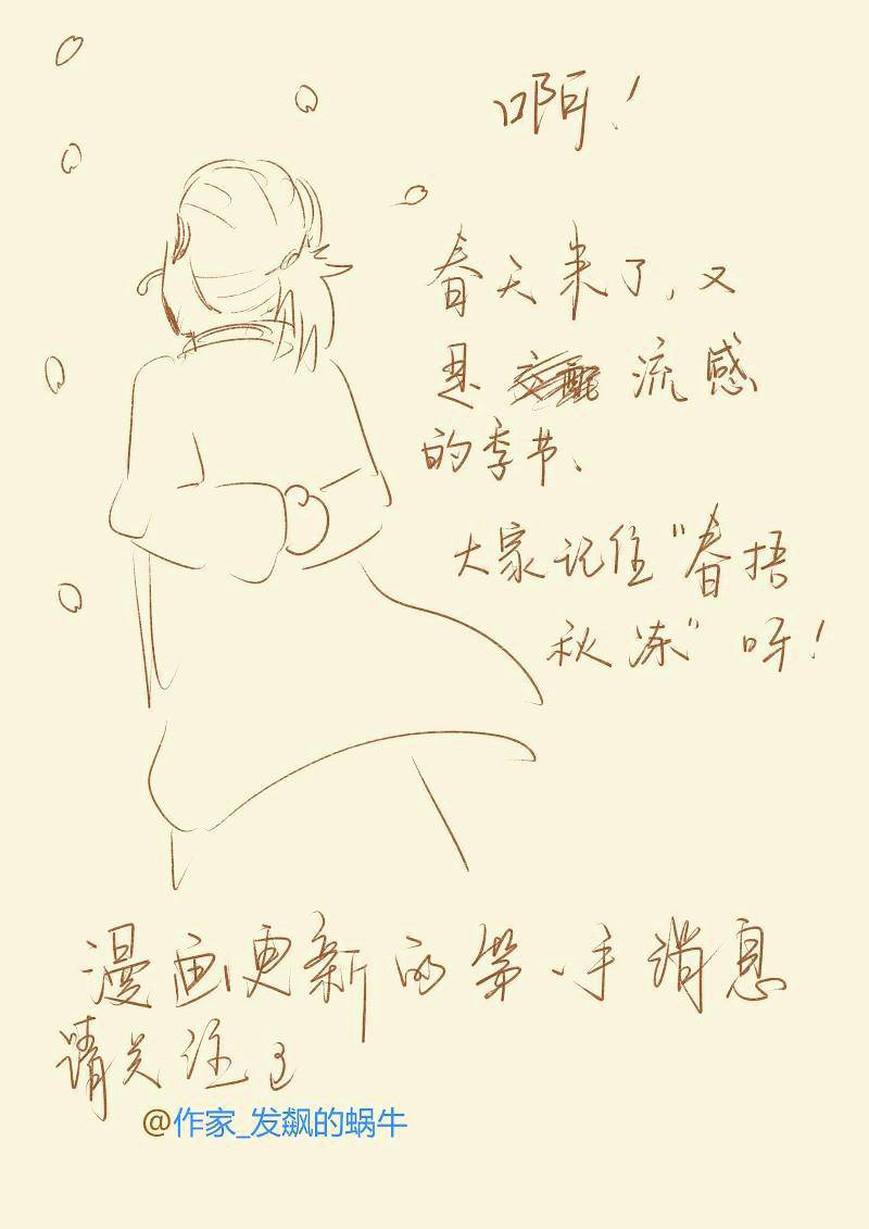 啊！
春天来了,又
是 交配 流感
的季节、
大家记住"春捂
秋冻"呀！
漫画更新的第一手消息
请关注
@作家_发飙的蜗牛